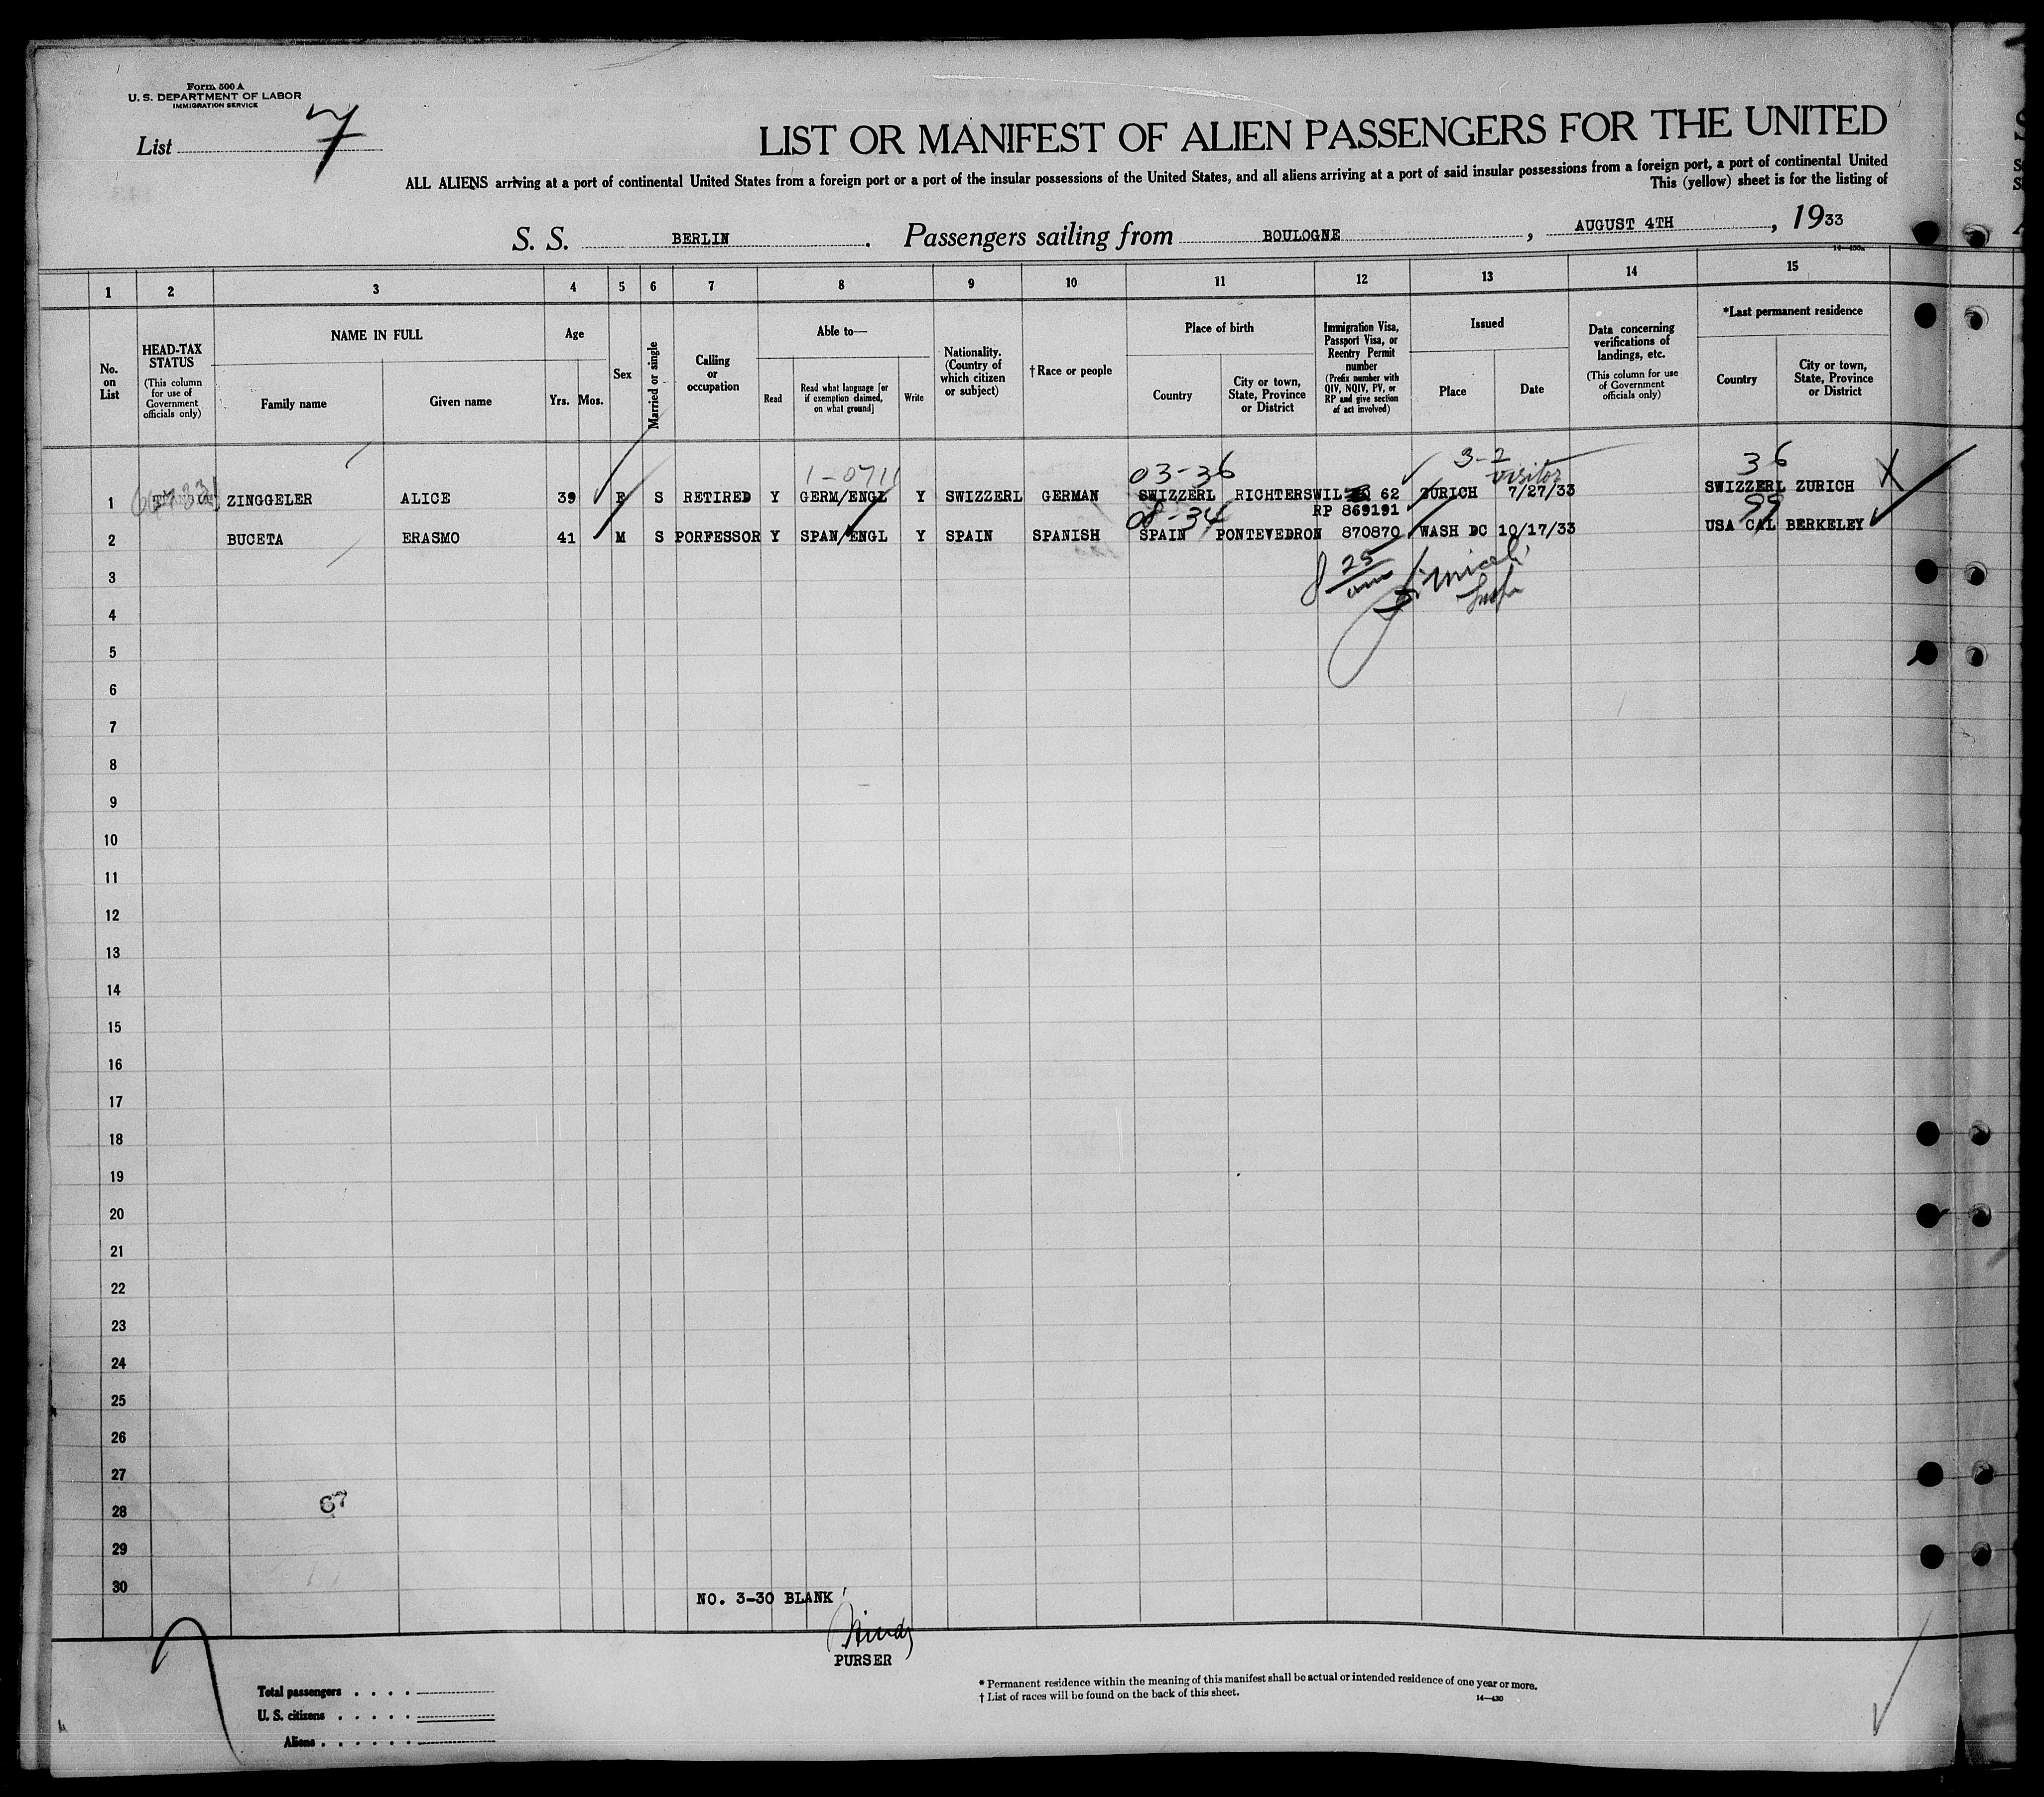 Form 500 A
U. S. DEPARTMENT OF LABOR
IMMIGRATION SERVICE
List 7
LIST OR MANIFEST OF ALIEN PASSENGERS FOR THE UNITED
ALL ALIENS arriving at a port of continental United States from a foreign port or a port of the insular possessions of the United States, and all aliens arriving at a port of said insular possessions from a foreign port, a port of continental United
This (yellow) sheet is for the listing of
S. S. BERLIN. Passengers sailing from BOULOGNE, AUGUST 4TH, 1933
1 2 3 4 5 6 7 8 9 10 11 12 13 14 15
No. on List
HEAD-TAX STATUS
(This column for use of Government officials only)
NAME IN FULL
Family name
Given name
Age
Yrs. Mos.
Sex
Married or single
Calling or occupation
Able to—
Read
Read what language [or if exemption claimed, on what ground]
Write
Nationality. (Country of which citizen or subject)
†Race or people
Place of birth
Country
City or town, State, Province or District
Immigration Visa, Passport Visa, or Reentry Permit number
(Prefix number with QIV, NQIV, PV, or RP and give section of act involved)
Issued
Place
Date
Data concerning verifications of landings, etc.
(This column for use of Government officials only)
*Last permanent residence
Country
City or town, State, Province or District
1-0711 03-36 3-2 visitor 36
1 ZINGGELER ALICE 39 F S RETIRED Y GERM/ENGL Y SWIZZERL GERMAN SWIZZERL RICHTERSWIL 62 ZURICH 7/27/33 SWIZZERL ZURICH X
RP 869191
08-34 99
2 BUCETA ERASMO 41 M S PORFESSOR Y SPAN/ENGL Y SPAIN SPANISH SPAIN PONTEVEDRON 870870 WASH DC 10/17/33 USA CAL BERKELEY
3
4
5
6
7
8
9
10
11
12
13
14
15
16
17
18
19
20
21
22
23
24
25
26
27
28 67
29
30
NO. 3-30 BLANK
PURSER
Total passengers
U. S. citizens
Aliens
* Permanent residence within the meaning of this manifest shall be actual or intended residence of one year or more.
† List of races will be found on the back of this sheet.
14—430